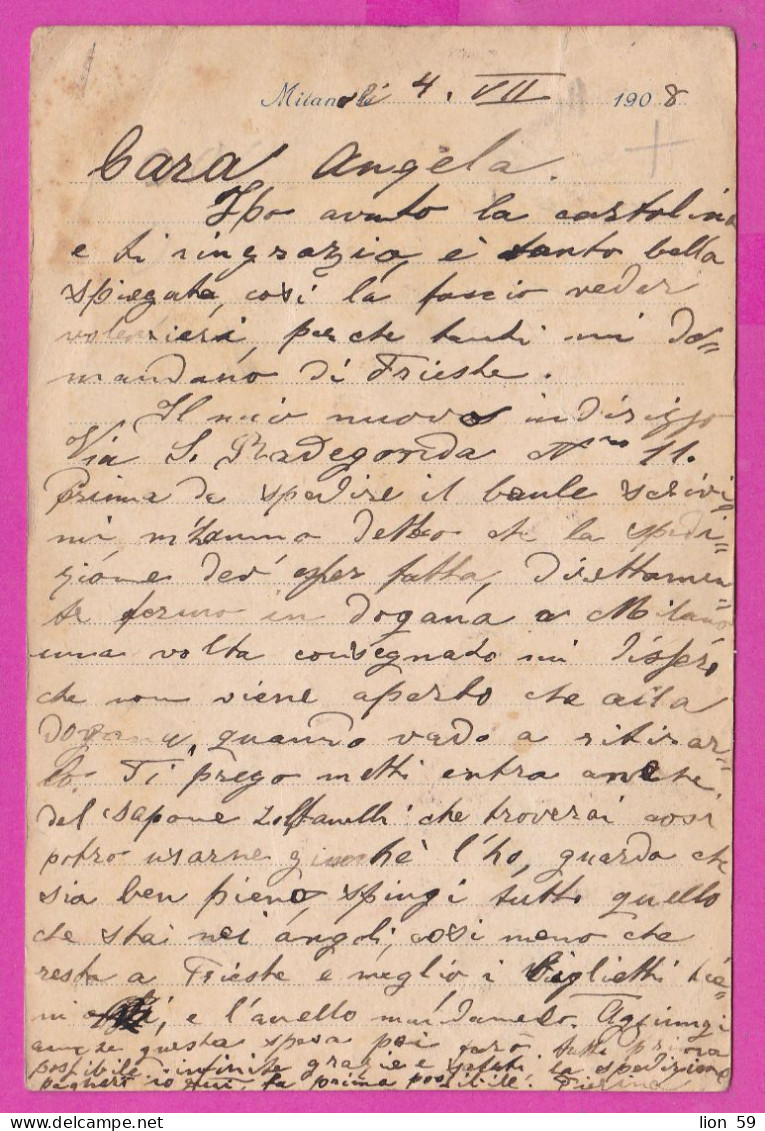 Milano li 4. VII 1908
Cara Angela.
Ho avuto la cartolina
e ti ringrazio, è tanto bella
spiegata, così la faccio veder
volentieri, perche tanti mi do=
mandano di Trieste.
Il mio nuovo indirizzo
Via S. Radegonda Nro 11.
Prima de spedire il baule scrivi
mi m'hanno detto che la spedi=
zione dev' esser fatta, direttamen=
te fermo in dogana a Milano
una volta consegnado mi dissero
che non viene aperto che alla
dogana, quando vado a ritirar=
lo. Ti prego metti entra anche
del sapone zolfanelli che troverai così
potro usarne giacchè l'ho, guarda che
sia ben pieno spingi tutto quello
che stai nei ángoli, così meno che
resta a Trieste e meglio i biglietti tie=
ni, e l'anello mandamelo. Aggiungi
anche questa spesa poi farò tutti prima
possibile infinite grazie e saluti la spedizione
pagherò io qui, la prima possibile. Pierina